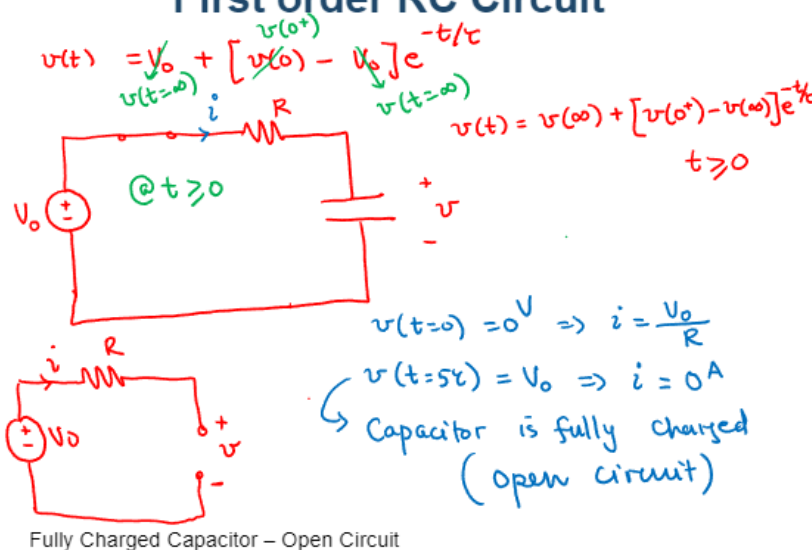 First order RC Circuit
v(0⁺)
v(t) = V₀ + [v(0) − V₀]e^(-t/τ)
v(t=∞)
v(t=∞)
i
R
v(t) = v(∞) + [v(0⁺) − v(∞)]e^(-t/τ)
t ⩾ 0
@ t ⩾ 0
V₀
+
−
+
v
−
v(t=0) = 0V ⇒ i = V₀/R
v(t=5τ) = V₀ ⇒ i = 0A
Capacitor is fully charged
(open circuit)
i
R
V0
+
−
+
v
−
Fully Charged Capacitor – Open Circuit